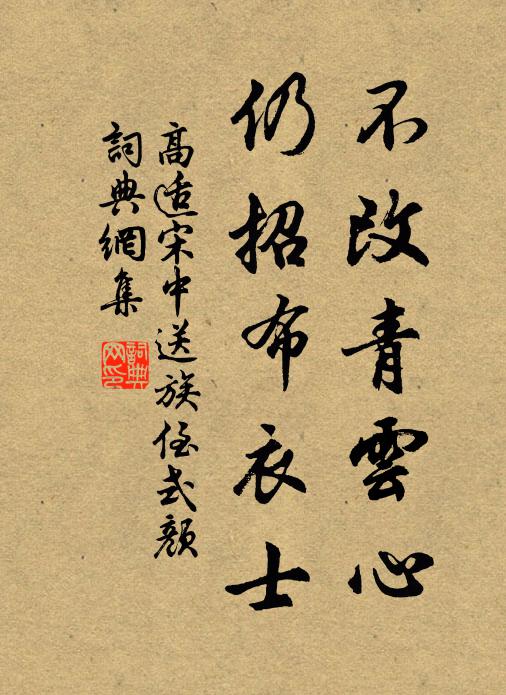 不改青雲心
仍招布衣士
高适宋中送族侄式顏
詞典網集
詞典
网印